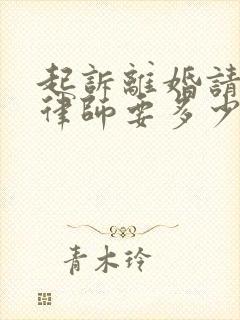 起訴離婚請
律師要多少
青木玲